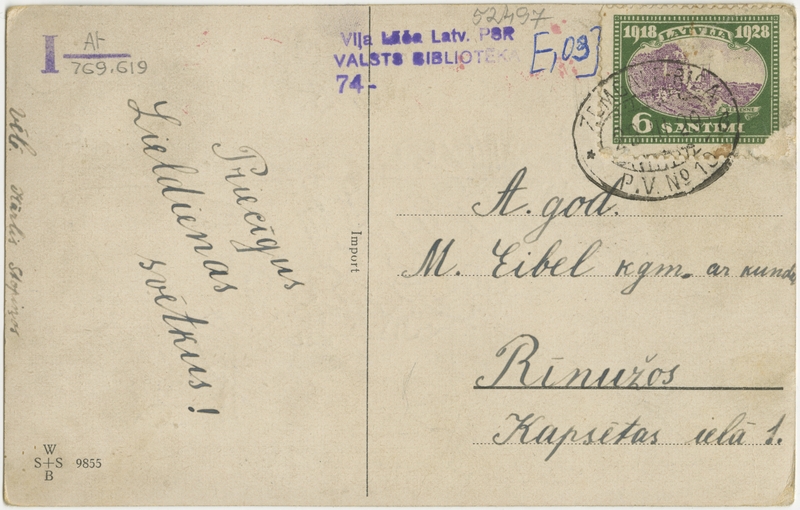 52497
I AF
769,619
Viļa Lāča Latv. PSR
VALSTS BIBLIOTĒKA
74-
[E,03]
1918 LATVIJA 1928
6 SANTIMI
P.V. № 13
Priecīgus
Lieldienas
svētkus!
vēl. Kārlis
Import
A. god.
M. Eibel kgm. ar kundzi
Rīnužos
Kapsētas ielā 1.
W
S+S 9855
B